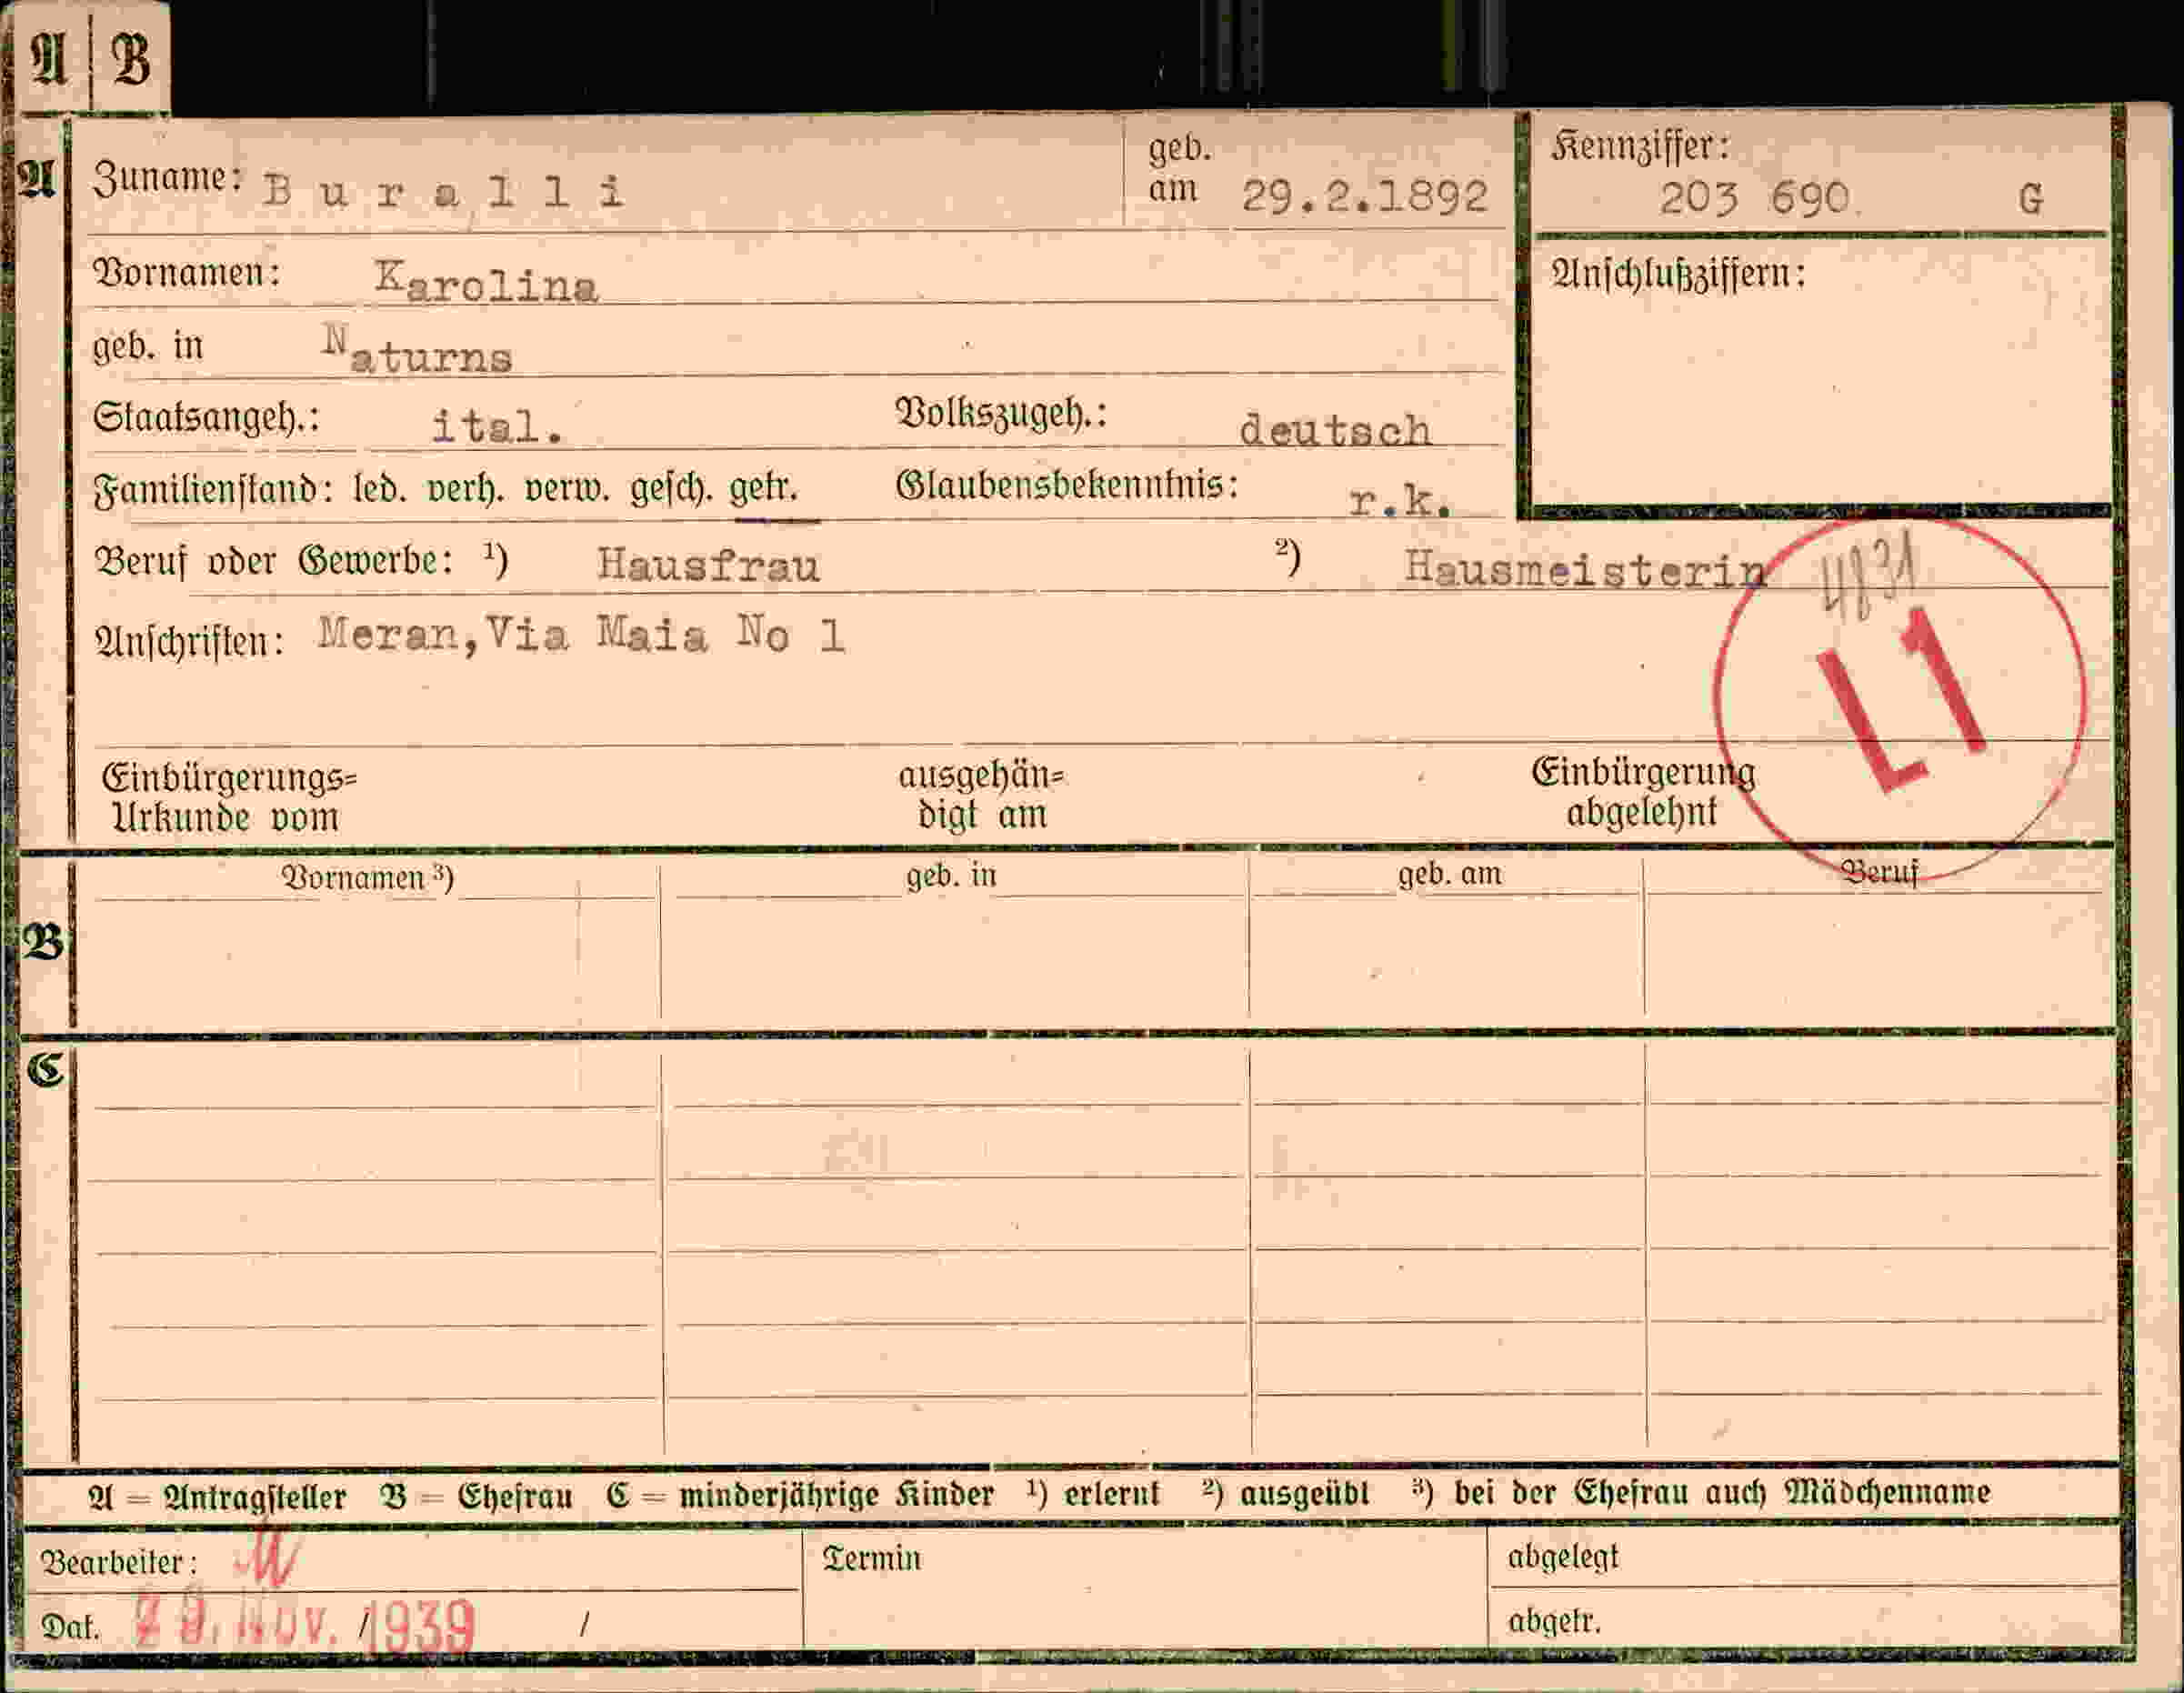 A B
A
Zuname: B u r a l l i
geb. am 29.2.1892
Kennziffer: 203 690 G
Vornamen: Karolina
Anschlußziffern:
geb. in Naturns
Staatsangeh.: ital. Volkszugeh.: deutsch
Familienstand: led. verh. verw. gesch. getr. Glaubensbekenntnis: r.k.
Beruf oder Gewerbe: ¹) Hausfrau ²) Hausmeisterin
4831
Anschriften: Meran,Via Maia No 1
L1
Einbürgerungs=
Urkunde vom
ausgehän=
digt am
Einbürgerung
abgelehnt
Vornamen ³) geb. in geb. am Beruf
B
C
A = Antragsteller B = Ehefrau C = minderjährige Kinder ¹) erlernt ²) ausgeübt ³) bei der Ehefrau auch Mädchenname
Bearbeiter:
Termin
abgelegt
Dat. Nov. / 1939 /
abgetr.